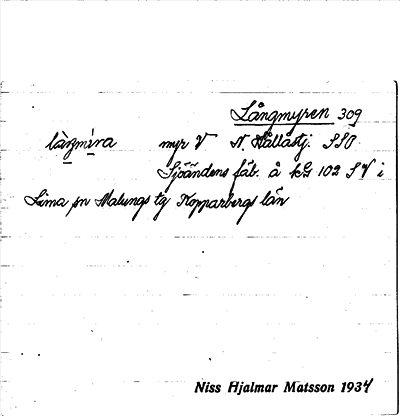 Långmyren 309
myr V N. Hållåtj. SSO
Sjöändens fäb. å kbl 102 SV i
Lima sn Malungs tg Kopparbergs län
Niss Hjalmar Matsson 1934